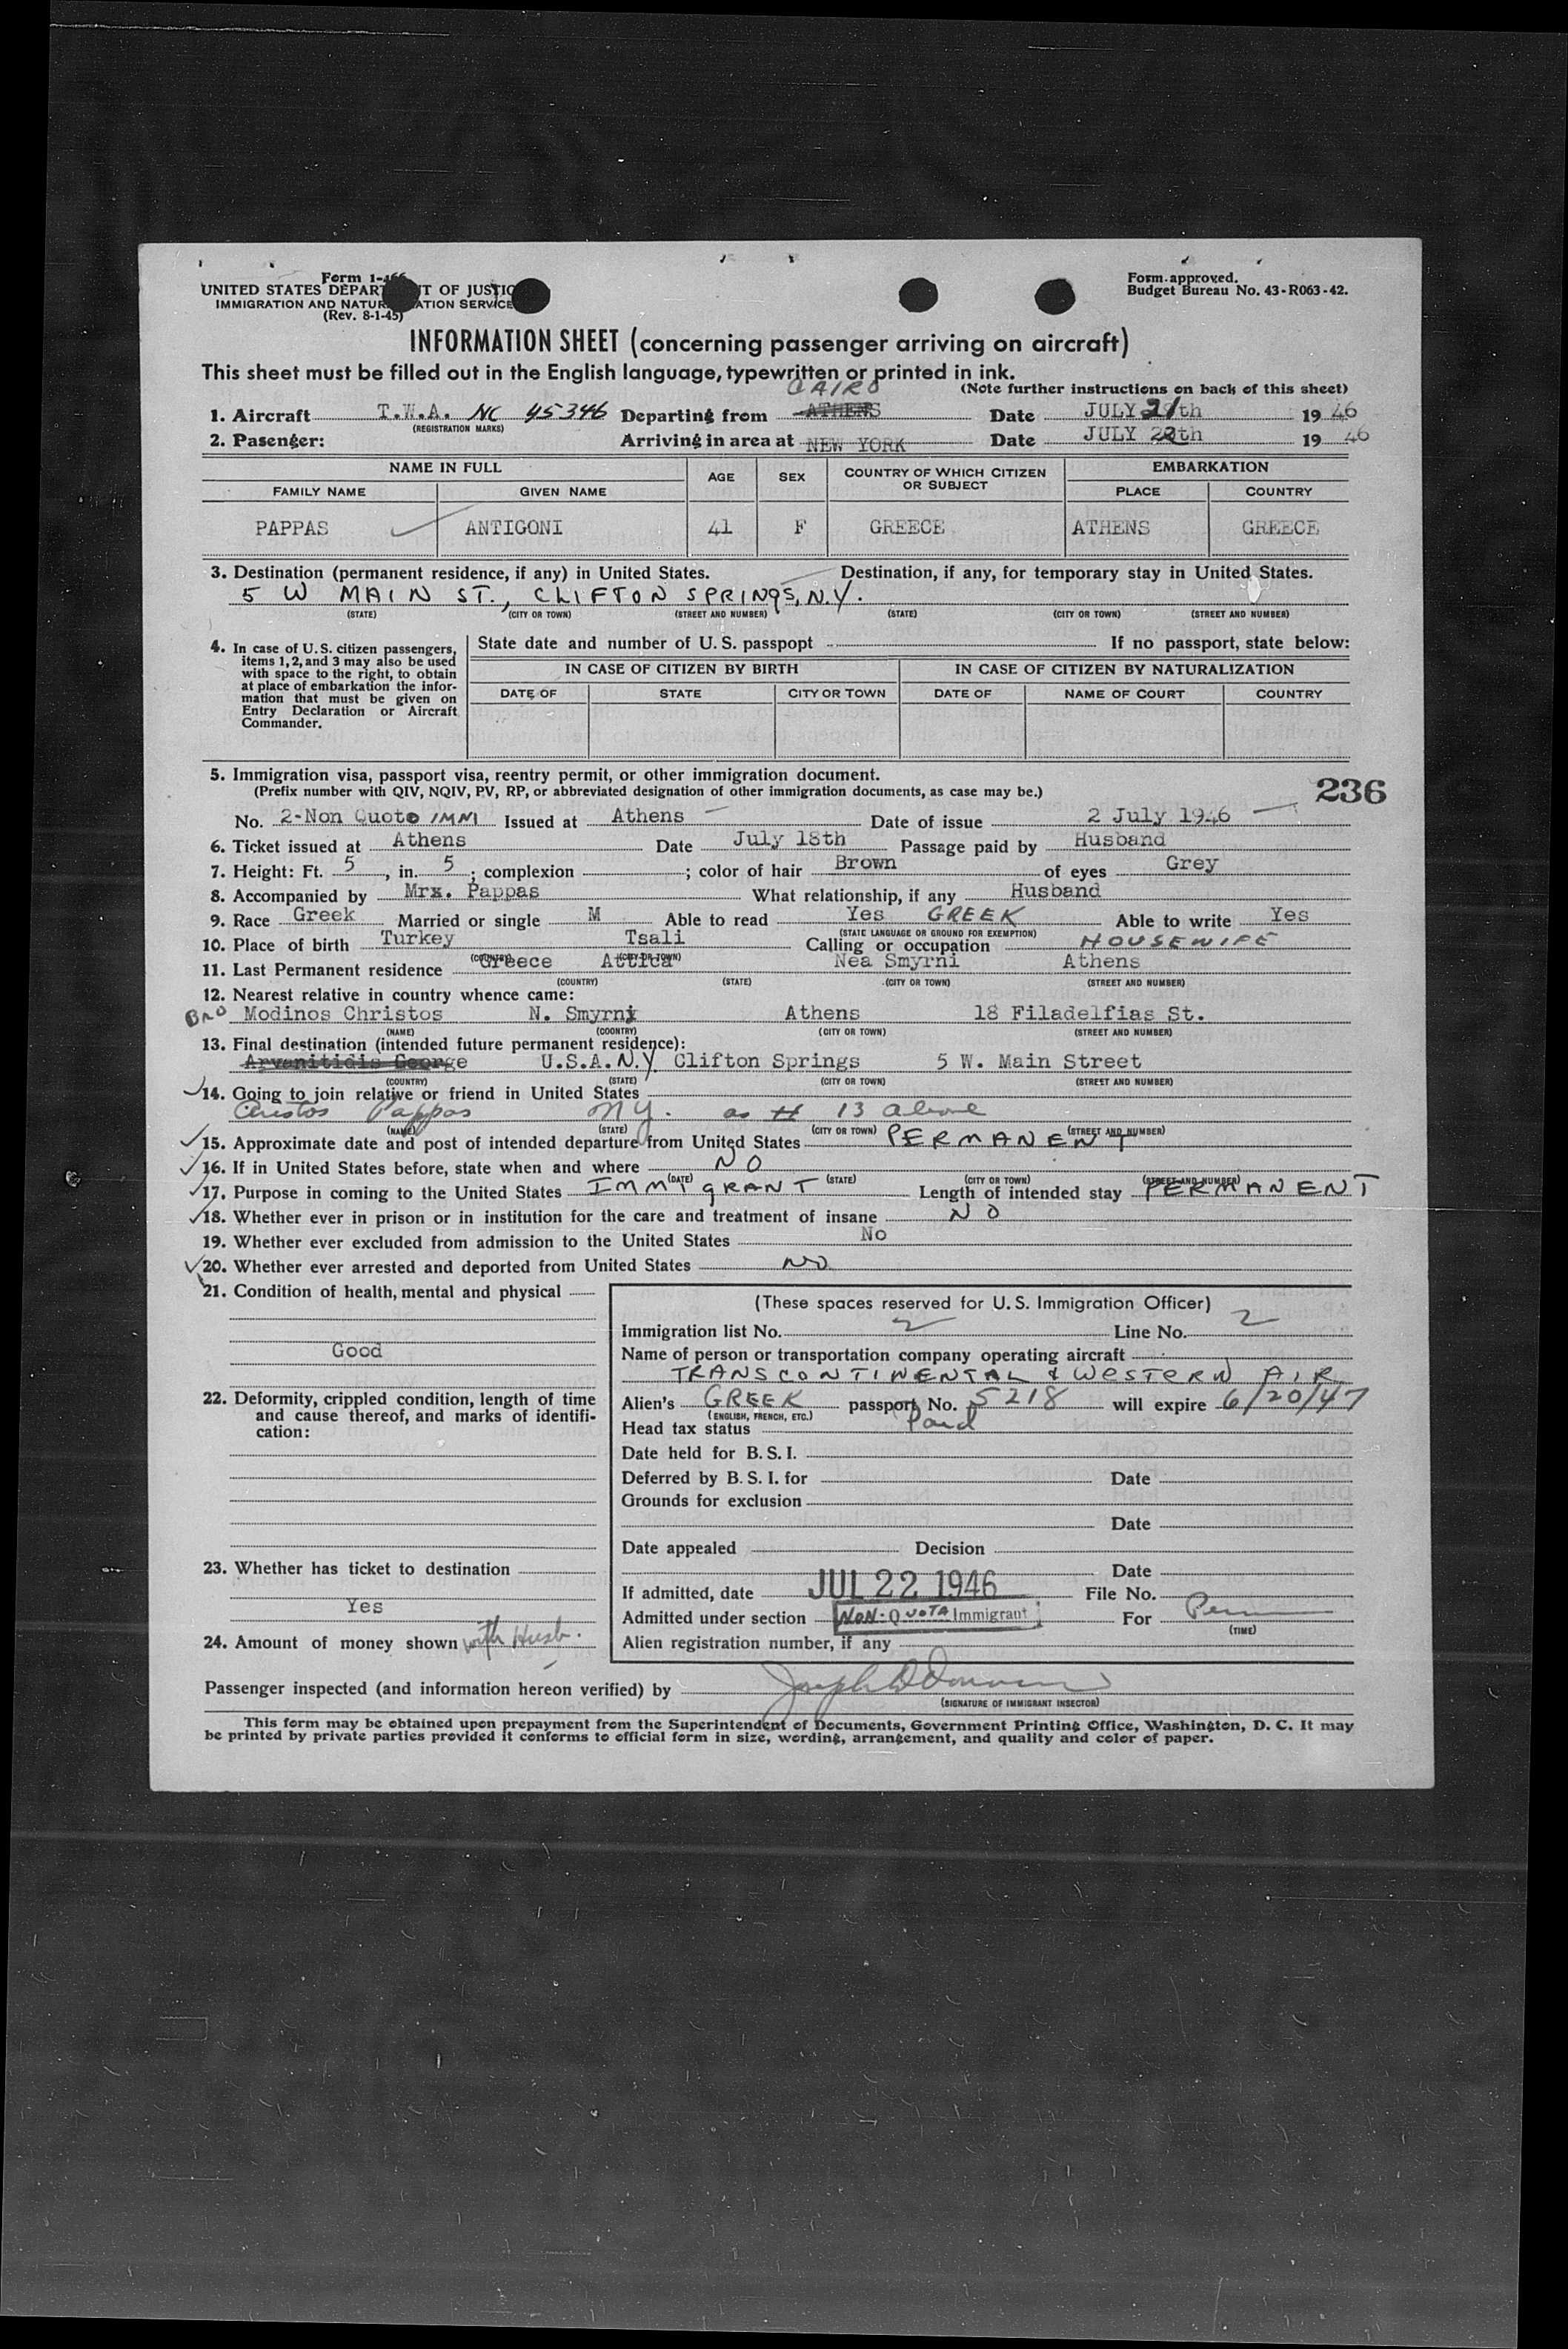 Form I-466
UNITED STATES DEPARTMENT OF JUSTICE
IMMIGRATION AND NATURALIZATION SERVICE
(Rev. 8-1-45)
Form approved.
Budget Bureau No. 43-R063-42.
INFORMATION SHEET (concerning passenger arriving on aircraft)
This sheet must be filled out in the English language, typewritten or printed in ink.
(Note further instructions on back of this sheet)
CAIRO
1. Aircraft T.W.A. NC 45346 Departing from ATHENS Date JULY 21th 1946
(REGISTRATION MARKS)
2. Pasenger: Arriving in area at NEW YORK Date JULY 22th 1946
NAME IN FULL AGE SEX COUNTRY OF WHICH CITIZEN OR SUBJECT EMBARKATION
FAMILY NAME GIVEN NAME PLACE COUNTRY
PAPPAS ANTIGONI 41 F GREECE ATHENS GREECE
3. Destination (permanent residence, if any) in United States. Destination, if any, for temporary stay in United States.
5 W MAIN ST., CLIFTON SPRINGS, N.Y.
(STATE) (CITY OR TOWN) (STREET AND NUMBER) (STATE) (CITY OR TOWN) (STREET AND NUMBER)
4. In case of U.S. citizen passengers, items 1, 2, and 3 may also be used with space to the right, to obtain at place of embarkation the information that must be given on Entry Declaration or Aircraft Commander.
State date and number of U.S. passpopt If no passport, state below:
IN CASE OF CITIZEN BY BIRTH IN CASE OF CITIZEN BY NATURALIZATION
DATE OF STATE CITY OR TOWN DATE OF NAME OF COURT COUNTRY
5. Immigration visa, passport visa, reentry permit, or other immigration document.
(Prefix number with QIV, NQIV, PV, RP, or abbreviated designation of other immigration documents, as case may be.)
236
No. 2-Non Quoto IMMI Issued at Athens Date of issue 2 July 1946
6. Ticket issued at Athens Date July 18th Passage paid by Husband
7. Height: Ft. 5, in. 5; complexion ; color of hair Brown of eyes Grey
8. Accompanied by Mrx. Pappas What relationship, if any Husband
9. Race Greek Married or single M Able to read Yes GREEK Able to write Yes
(STATE LANGUAGE OR GROUND FOR EXEMPTION)
10. Place of birth Turkey Tsali Calling or occupation HOUSEWIFE
(COUNTRY) (CITY OR TOWN)
11. Last Permanent residence Greece Attica Nea Smyrni Athens
(COUNTRY) (STATE) (CITY OR TOWN) (STREET AND NUMBER)
12. Nearest relative in country whence came:
BRO Modinos Christos N. Smyrni Athens 18 Filadelfias St.
(NAME) (COONTRY) (CITY OR TOWN) (STREET AND NUMBER)
13. Final destination (intended future permanent residence):
Arvanitidis George U.S.A. N.Y. Clifton Springs 5 W. Main Street
(COUNTRY) (STATE) (CITY OR TOWN) (STREET AND NUMBER)
14. Going to join relative or friend in United States
Christos Pappas N.Y. as # 13 above
(NAME) (STATE) (CITY OR TOWN) (STREET AND NUMBER)
15. Approximate date and post of intended departure from United States PERMANENT
16. If in United States before, state when and where NO
(DATE) (STATE) (CITY OR TOWN) (STREET AND NUMBER)
17. Purpose in coming to the United States IMMIGRANT Length of intended stay PERMANENT
18. Whether ever in prison or in institution for the care and treatment of insane NO
19. Whether ever excluded from admission to the United States No
20. Whether ever arrested and deported from United States NO
21. Condition of health, mental and physical
Good
22. Deformity, crippled condition, length of time and cause thereof, and marks of identification:
23. Whether has ticket to destination
Yes
24. Amount of money shown with Husb.
(These spaces reserved for U.S. Immigration Officer)
Immigration list No. 2 Line No. 2
Name of person or transportation company operating aircraft
TRANSCONTINENTAL & WESTERN AIR
Alien's GREEK passport No. 5218 will expire 6/20/47
(ENGLISH, FRENCH, ETC.)
Head tax status Paid
Date held for B.S.I.
Deferred by B.S.I. for Date
Grounds for exclusion
Date
Date appealed Decision
Date
If admitted, date JUL 22 1946 File No.
Admitted under section NON-QUOTA Immigrant For Perm
(TIME)
Alien registration number, if any
Passenger inspected (and information hereon verified) by Joseph
(SIGNATURE OF IMMIGRANT INSECTOR)
This form may be obtained upon prepayment from the Superintendent of Documents, Government Printing Office, Washington, D. C. It may
be printed by private parties provided it conforms to official form in size, wording, arrangement, and quality and color of paper.